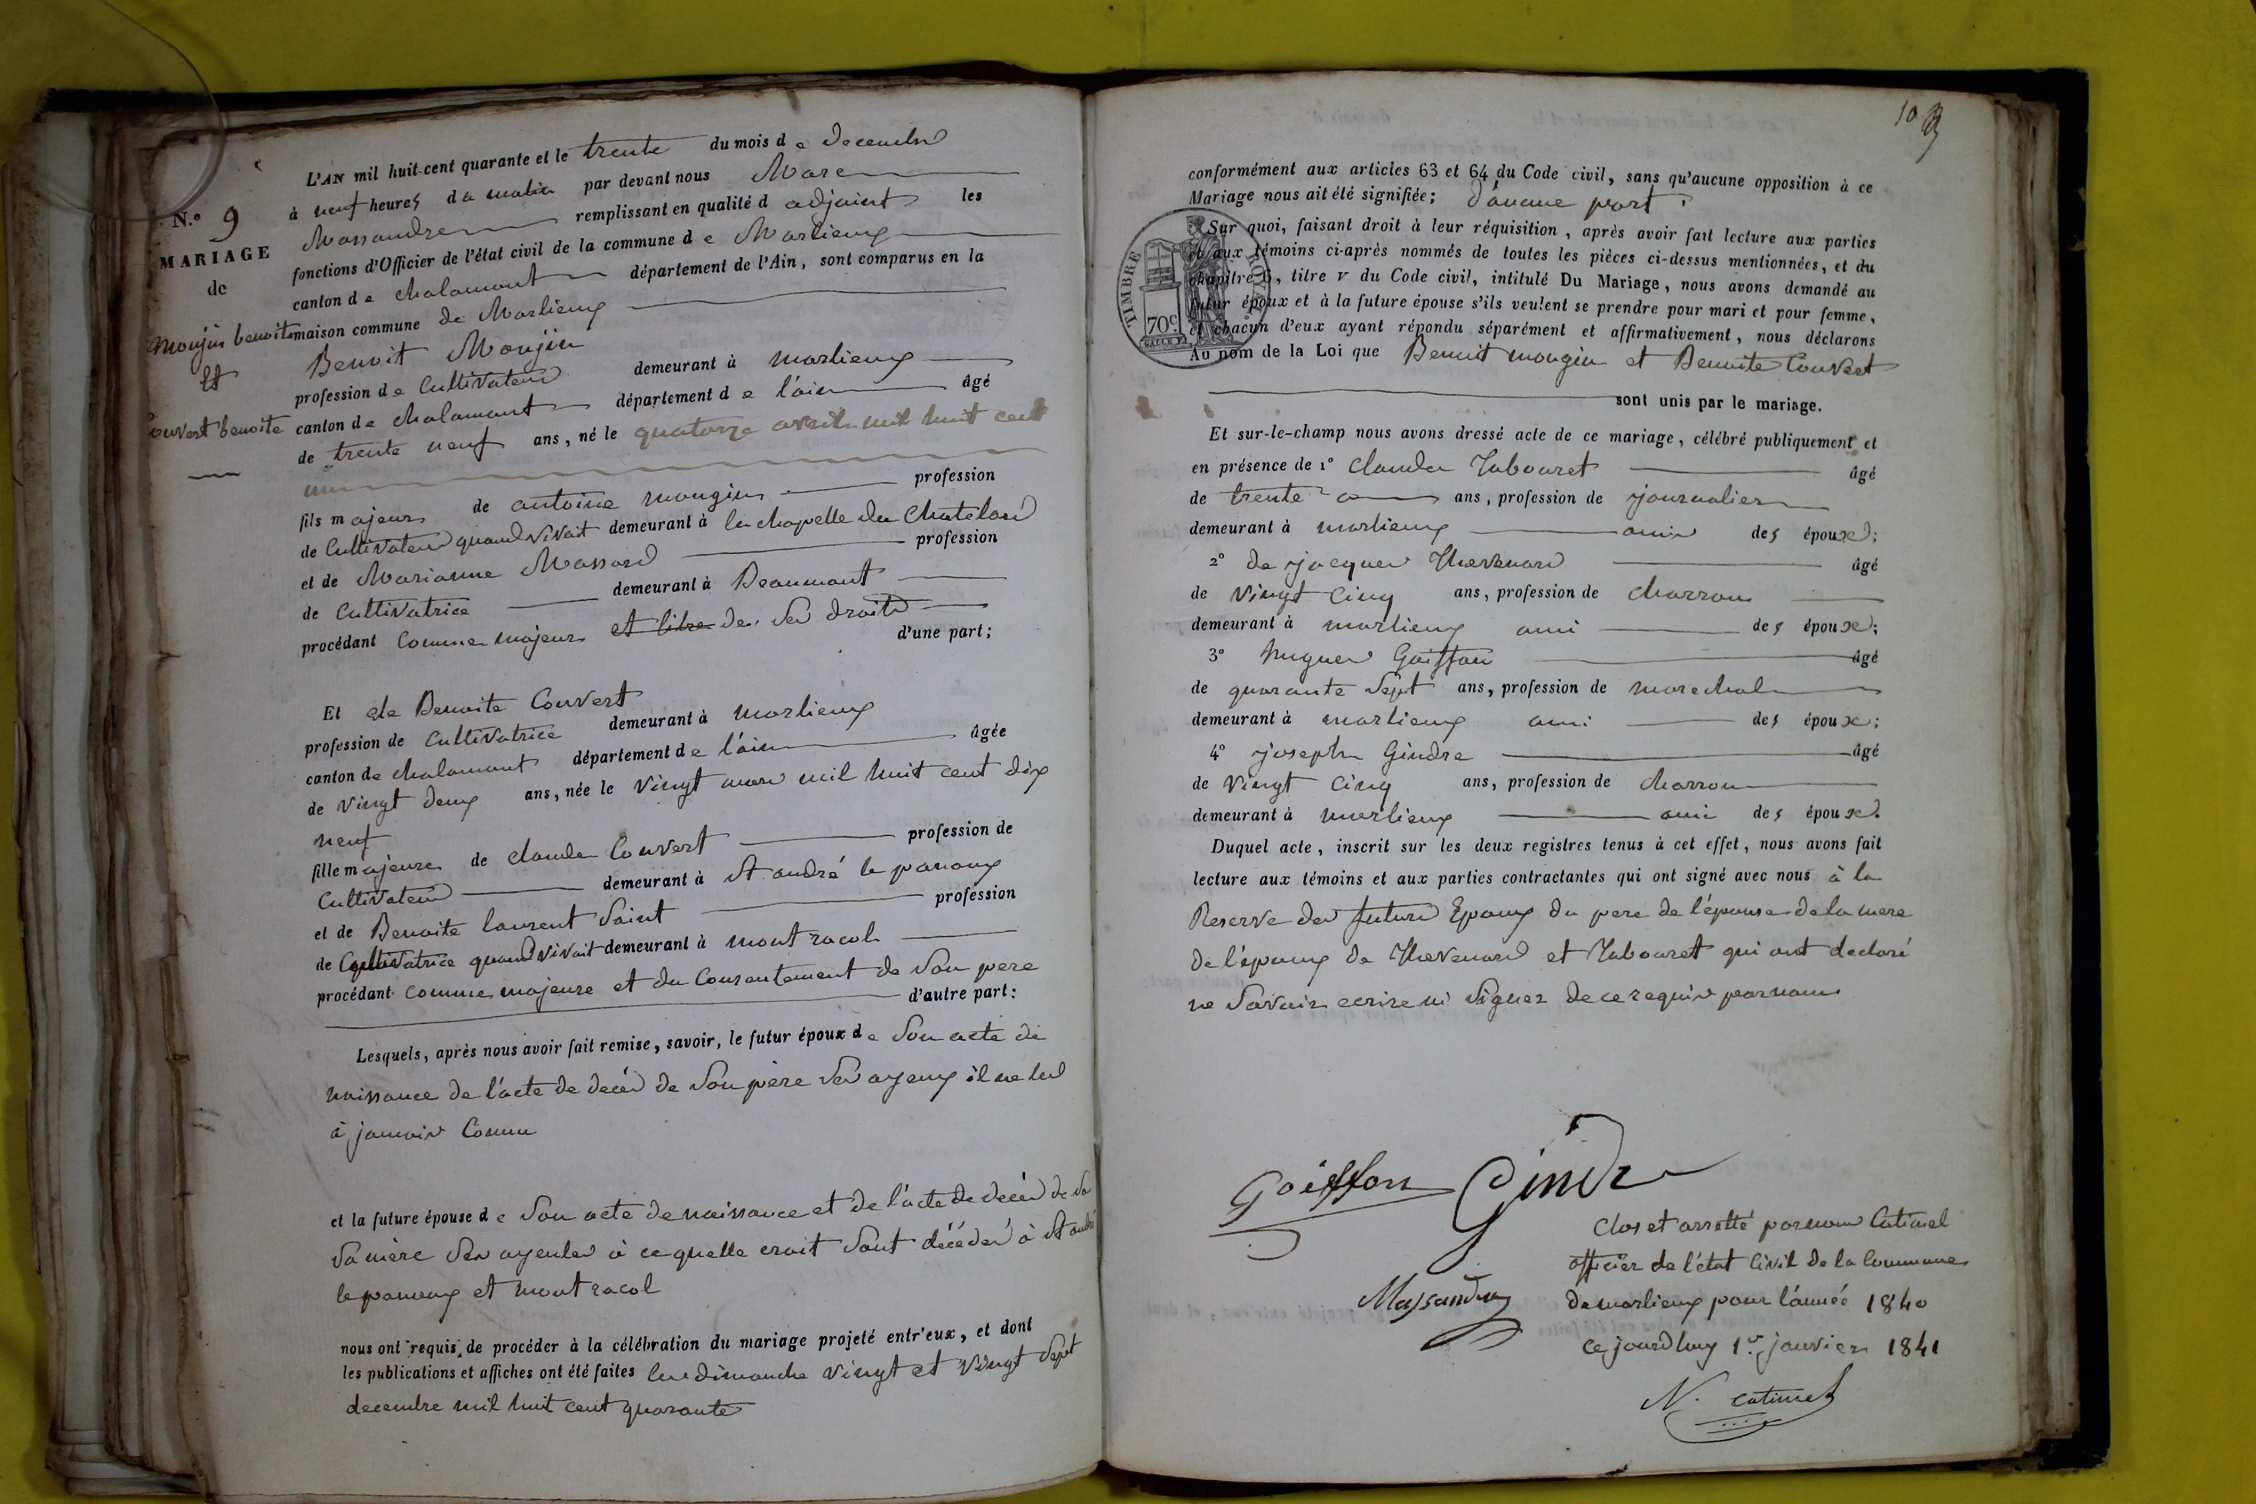 L'AN mil huit-cent quarante et le trente du mois de decembre
à neuf heures du matin par devant nous Marc
Massandre remplissant en qualité d adjoint les
fonctions d'Officier de l'état civil de la commune de Marlieux
canton de chalamont département de l'Ain, sont comparus en la
maison commune de Marlieux
N.º 9
MARIAGE
de
Monjin benoit
Et
Couvert benoite
Benoit Monjin
profession de Cultivateur demeurant à marlieux
canton de chalamont département de l'ain âgé
de trente neuf ans, né le quatorze avril mil huit cent
un
fils majeur de antoine mongin profession
de Cultivateur quand vivait demeurant à la chapelle du Chatelard
et de Marianne Massard profession
de Cultivatrice demeurant à Beaumont
procédant comme majeur et libre de ses droits
d'une part;
Et de Benoite Couvert
profession de Cultivatrice demeurant à marlieux
canton de chalamont département de l'ain âgée
de vingt deux ans, née le vingt mars mil huit cent dix
neuf
fille majeure de claude Couvert profession de
Cultivateur demeurant à St andré le panoux
et de Benoite laurent Saint profession
de Cultivatrice quand vivait demeurant à mont racol
procédant comme majeure et du Consentement de son pere
d'autre part:
Lesquels, après nous avoir fait remise, savoir, le futur époux de son acte de
naissance de l'acte de decès de son père ses ayeux il ne les
à jamais Connu
et la future épouse de son acte de naissance et de l'acte de decès de sa
sa mère ses ayeules à ce quelle croit sont décédés à St andré
le panoux et mont racol
nous ont requis de procéder à la célébration du mariage projeté entr'eux, et dont
les publications et affiches ont été faites les dimanche vingt et vingt sept
decembre mil huit cent quarante
10
conformément aux articles 63 et 64 du Code civil, sans qu'aucune opposition à ce
Mariage nous ait été signifiée; d'aucune part.
Sur quoi, faisant droit à leur réquisition, après avoir fait lecture aux parties
et aux témoins ci-après nommés de toutes les pièces ci-dessus mentionnées, et du
chapitre 6, titre V du Code civil, intitulé Du Mariage, nous avons demandé au
futur époux et à la future épouse s'ils veulent se prendre pour mari et pour femme,
et chacun d'eux ayant répondu séparément et affirmativement, nous déclarons
Au nom de la Loi que Benoit mongin et Benoite Couvert
TIMBRE ROYAL
70c
sont unis par le mariage.
Et sur-le-champ nous avons dressé acte de ce mariage, célébré publiquement et
en présence de 1º Claude Tabouret âgé
de trente ans, profession de journalier
demeurant à marlieux ami des époux;
2º de jacques Thevenard âgé
de vingt cinq ans, profession de charron
demeurant à marlieux ami des époux;
3º hugues Goiffon âgé
de quarante sept ans, profession de marechal
demeurant à marlieux ami des époux;
4º joseph Gindre âgé
de vingt cinq ans, profession de charron
demeurant à marlieux ami des époux.
Duquel acte, inscrit sur les deux registres tenus à cet effet, nous avons fait
lecture aux témoins et aux parties contractantes qui ont signé avec nous à la
Reserve des futurs Epoux du pere de l'épouse de la mere
de l'époux de Thevenard et Tabouret qui ont declaré
ne savoir ecrire ni signer de ce requis par nous
Goiffon Gindre
Massandre
Clos et arretté par nous Catimel
officier de l'état Civil de la Commune
de marlieux pour l'année 1840
ce jourdhuy 1er janvier 1841
N. Catimel